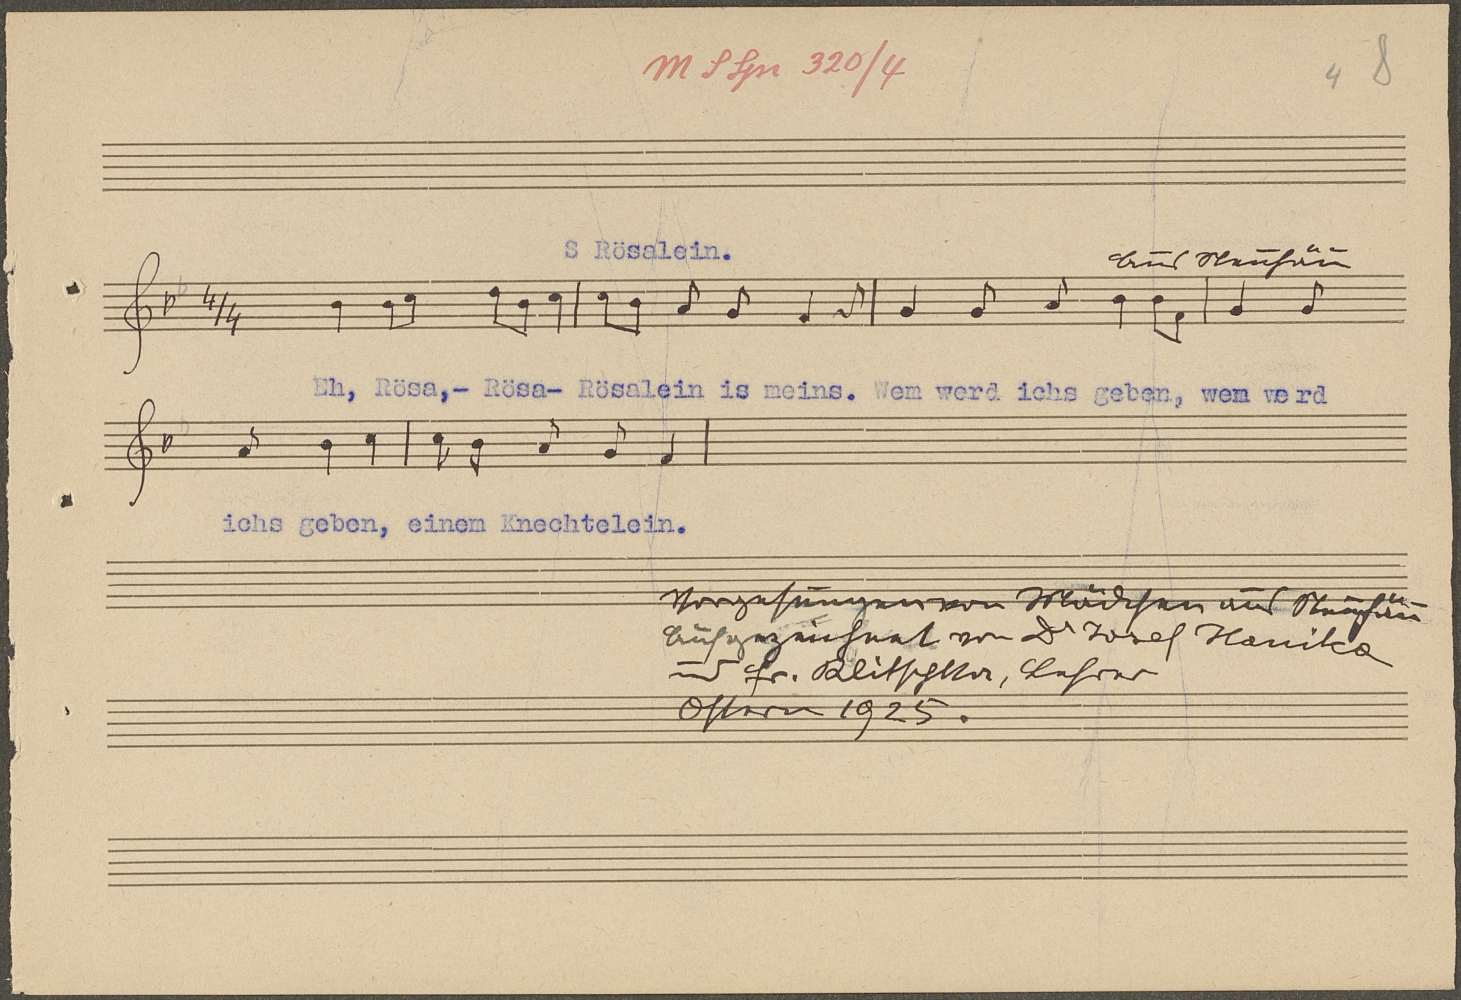 M S Spr 320/4
4 8
S Rösalein.
Aus Neuhäu
4/4
Eh, Rösa,- Rösa- Rösalein is meins. Wem werd ichs geben, wem werd
ichs geben, einem Knechtelein.
Vorgesungen von Mädchen aus Neuhäu
Aufgezeichnet von Dr Josef Hanika
und Fr. Klitschka, Lehrer
Ostern 1925.